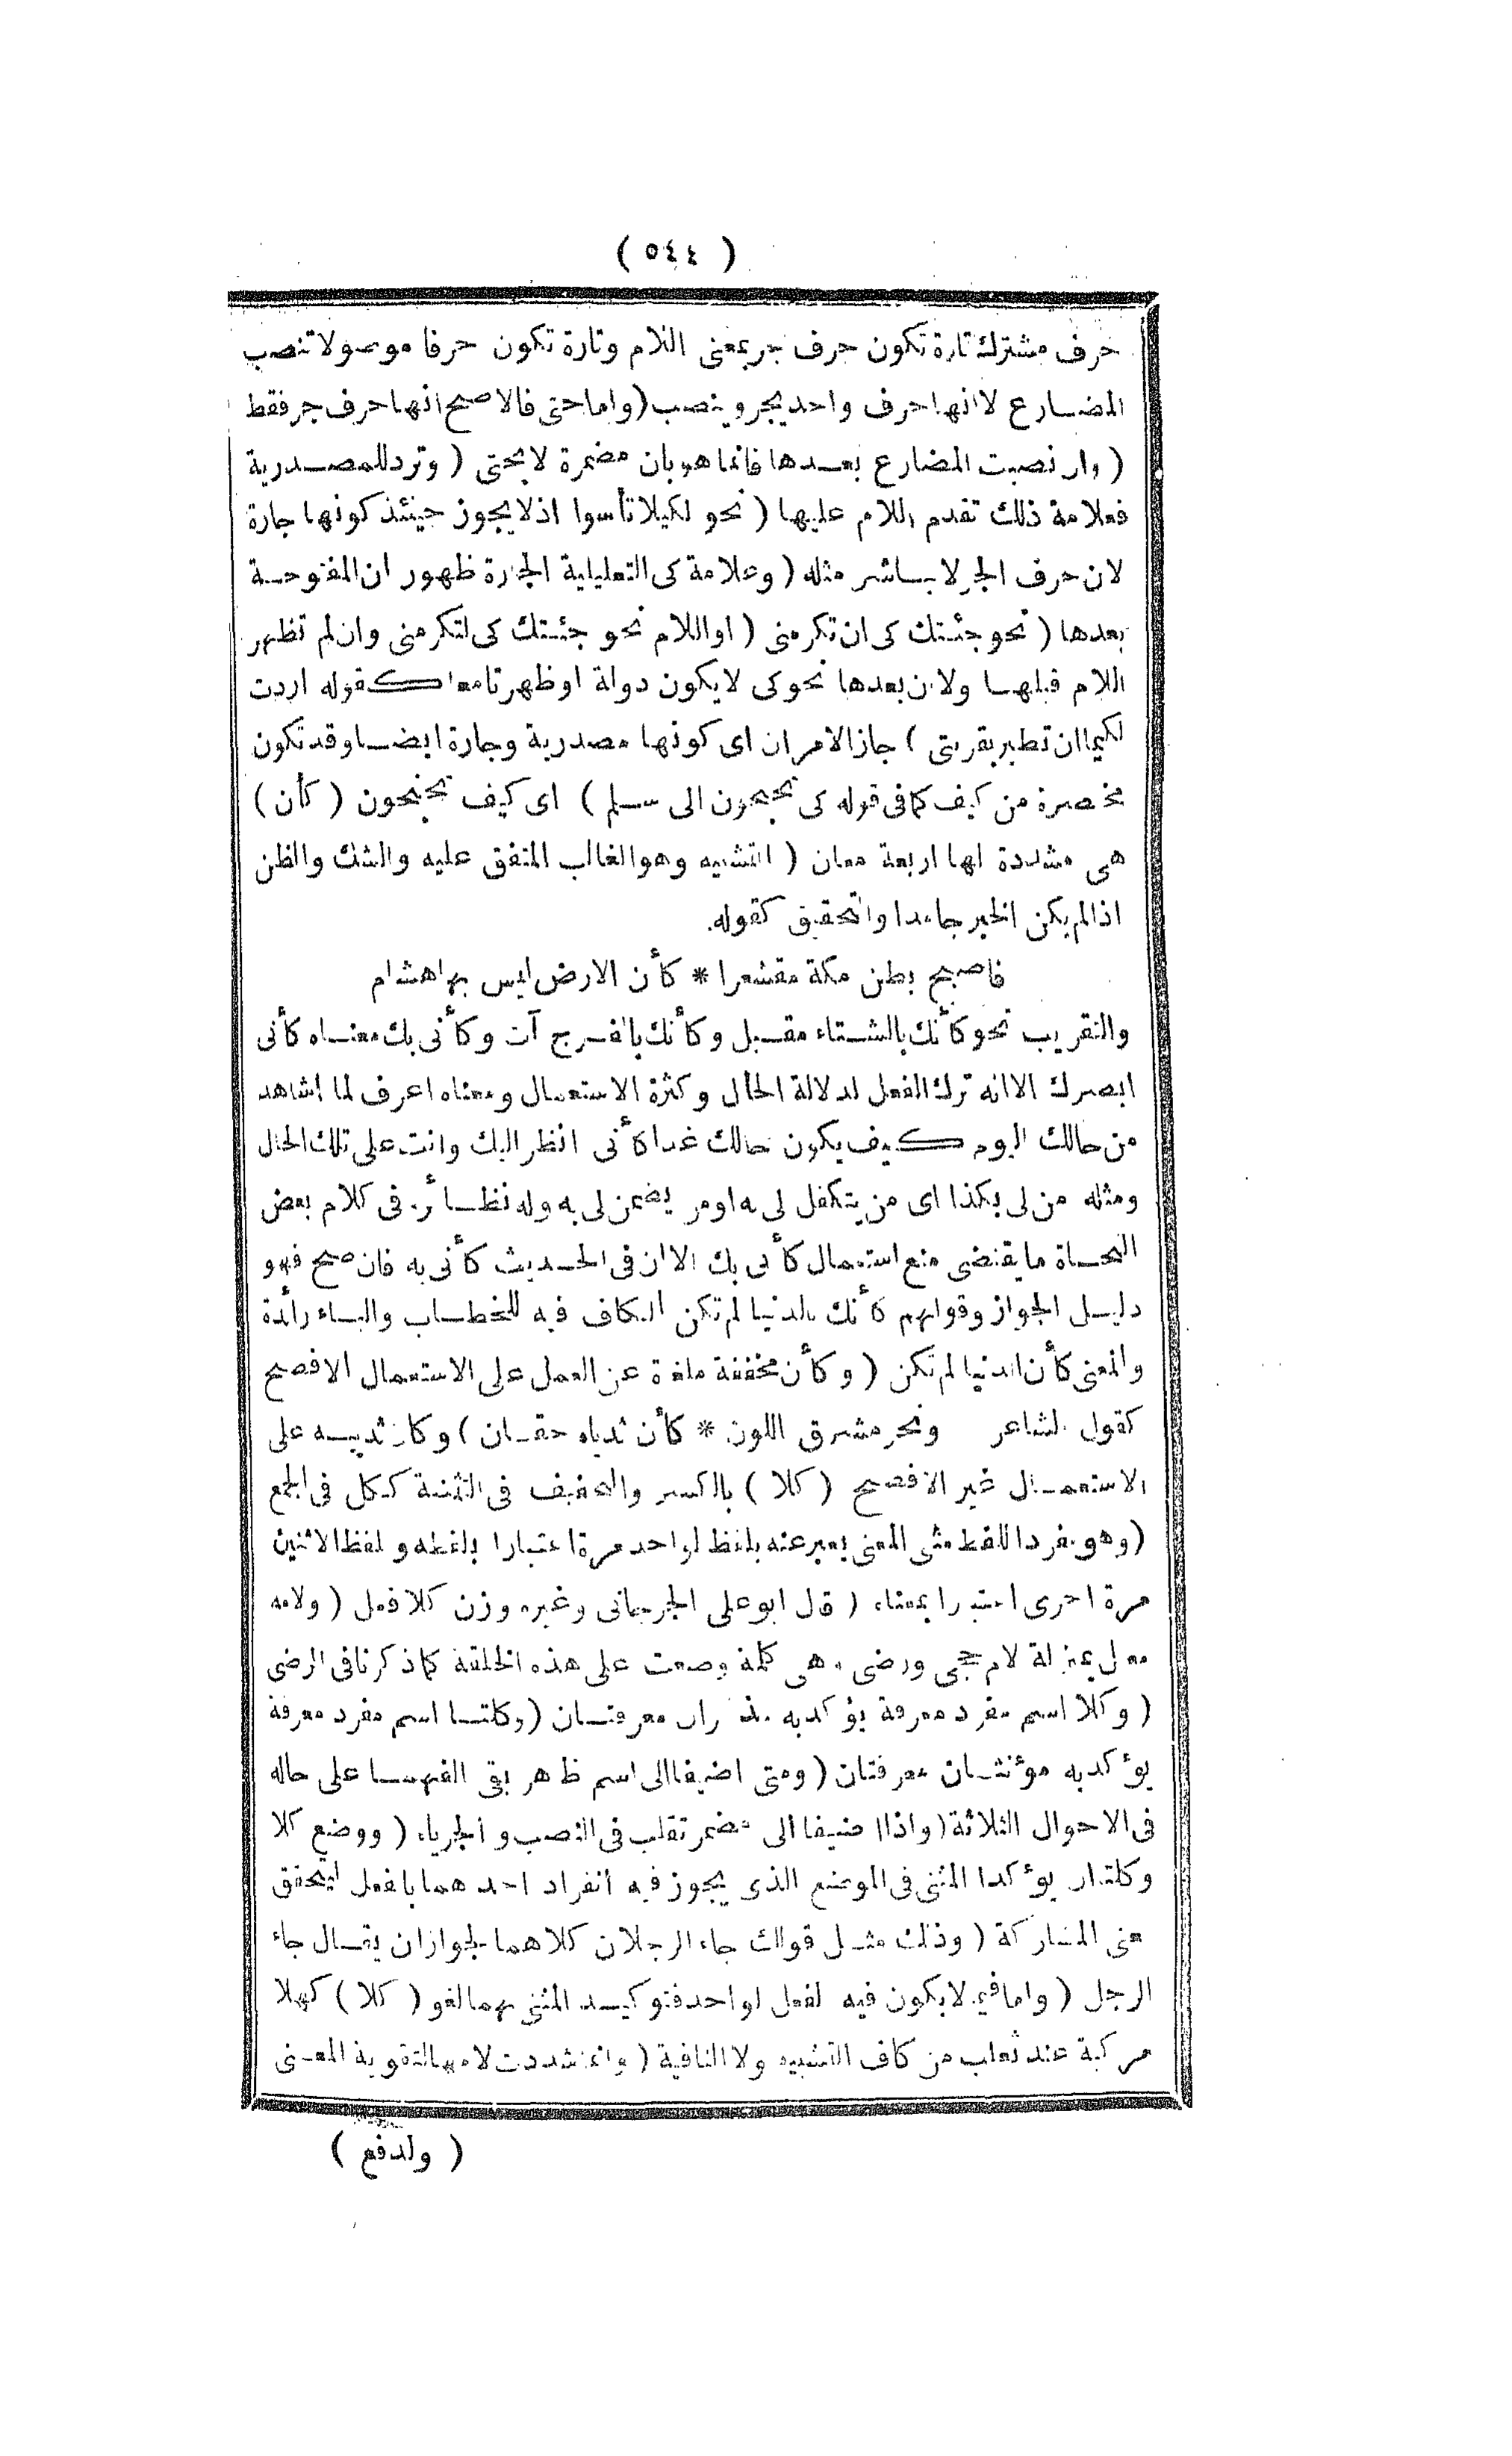 ( ٥٤٤ )
حرف مشترك تارة تكون حرف جر بمعنى اللام وتارة تكون حرفا موصولا تنصب
المضارع لا انها حرف واحد يجر وينصب (واما حتى فالاصح انها حرف جر فقط
( وان نصبت المضارع بعدها فانما هو بان مضمرة لا بحتى ( وترد للمصدرية
فعلامة ذلك تقدم اللام عليها ( نحو لكيلا تأسوا اذ لا يجوز حينئذ كونها جارة
لان حرف الجر لا يباشر مثله ( وعلامة كى التعليلية الجارة ظهور ان المفتوحة
بعدها ( نحو جئتك كى ان تكرمنى ( او اللام نحو جئتك كى لتكرمنى وان لم تظهر
اللام قبلها ولا ان بعدها نحو كى لا يكون دولة او ظهرتا معا كقوله اردت
لكيما ان تطير بقربتى ) جاز الامران اى كونها مصدرية وجارة ايضا وقد تكون
مختصرة من كيف كما فى قوله كى تجنحون الى سلم ) اى كيف تجنحون ( كأن )
هى مشددة لها اربعة معان ( التشبيه وهو الغالب المتفق عليه والشك والظن
اذا لم يكن الخبر جامدا والتحقيق كقوله.
فاصبح بطن مكة مقشعرا * كأن الارض ليس بها هشام
والتقريب نحو كأنك بالشتاء مقبل وكأنك بالفرج آت وكأنى بك معناه كأنى
ابصرك الا انه ترك الفعل لدلالة الحال وكثرة الاستعمال ومعناه اعرف لما اشاهد
من حالك اليوم كيف يكون حالك غدا كأنى انظر اليك وانت على تلك الحال
ومثله من لى بكذا اى من يتكفل لى به او من يضمن لى به وله نظائر. فى كلام بعض
النحاة ما يقتضى منع استعمال كأنى بك الا ان فى الحديث كأنى به فان صح فهو
دليل الجواز وقولهم كأنك بالدنيا لم تكن الكاف فيه للخطاب والباء زائدة
والمعنى كأن الدنيا لم تكن ( وكأن مخففة ملغاة عن العمل على الاستعمال الافصح
كقول الشاعر ونحر مشرق اللون * كأن ثدياه حقان ) وكان ثدييه على
الاستعمال غير الافصح ( كلا ) بالكسر والتخفيف فى التثنية ككل فى الجمع
(وهو مفرد اللفظ مثنى المعنى يعبر عنه بلفظ الواحد مرة اعتبارا بلفظه وبلفظ الاثنين
مرة اخرى اعتبارا بمعناه ( قال ابو على الجرجانى وغيره وزن كلا فعل ( ولامه
معتل بمنزلة لام حجى ورضى وهى كلمة وضعت على هذه الخلقة كما ذكرنا فى الرضى
( وكلا اسم مفرد معرفة يؤكد به مذكران معرفتان (وكلتا اسم مفرد معرفة
يؤكد به مؤنثان معرفتان ( ومتى اضيفا الى اسم ظاهر بقى الفهما على حاله
فى الاحوال الثلاثة (واذا اضيفا الى مضمر تقلب فى النصب والجر ياء ( ووضع كلا
وكلتا ان يؤكدا المثنى فى الموضع الذى يجوز فيه انفراد احدهما بالفعل ليتحقق
معنى المشاركة ( وذلك مثل قولك جاء الرجلان كلاهما لجواز ان يقال جاء
الرجل ( واما فيما لا يكون فيه الفعل لواحد فتوكيد المثنى بهما لغو ( كلا ) كهلا
مركبة عند ثعلب من كاف التشبيه ولا النافية ( وانما شددت لامها لتقوية المعنى
( ولدفع )